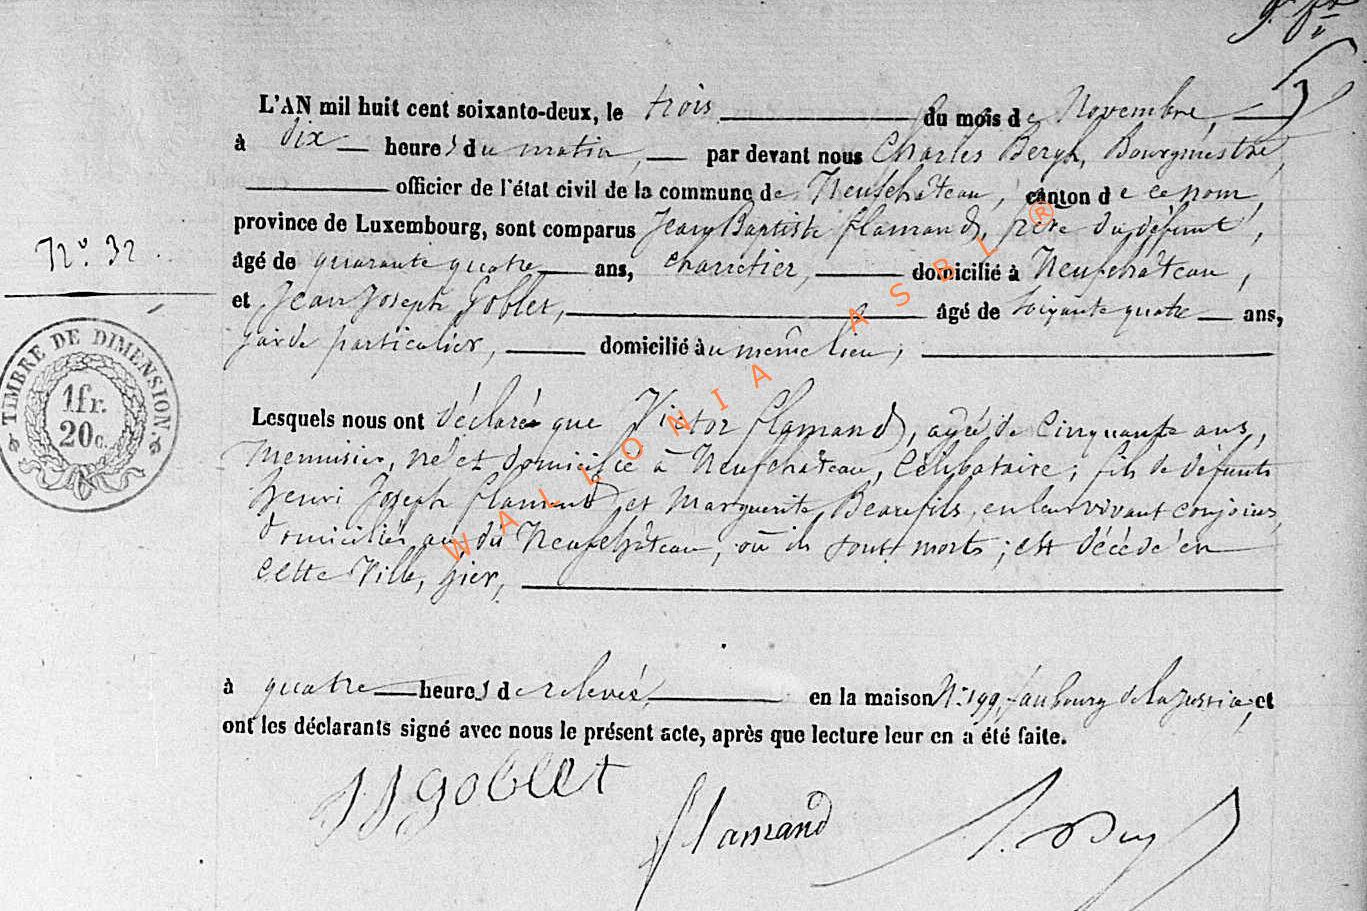 L'AN mil huit cent soixante-deux, le trois du mois de Novembre,
à dix heures du matin, par devant nous Charles Bergh, Bourgmestre,
officier de l'état civil de la commune de Neufchâteau, canton de ce nom,
province de Luxembourg, sont comparus Jean Baptiste flamand, frère du défunt,
N° 32
âgé de quarante quatre ans, charretier, domicilié à Neufchâteau,
et Jean Joseph Goblet, âgé de soixante quatre ans,
garde particulier, domicilié au même lieu;
TIMBRE DE DIMENSION
1 fr.
20 c.
Lesquels nous ont déclaré que Victor flamand, agé de Cinquante ans,
Menuisier, né et domicilié à Neufchâteau, Célibataire; fils de défunts
henri Joseph flamand et Marguerite, en leur vivant conjoints
domiciliés au dit Neufchâteau, où ils sont morts; est décédé en
cette Ville, hier,
à quatre heures de relevée, en la maison N° 199, faubourg de la Justice, et
ont les déclarants signé avec nous le présent acte, après que lecture leur en a été faite.
JJ goblet
flamand
WALLONIA ASBL ®